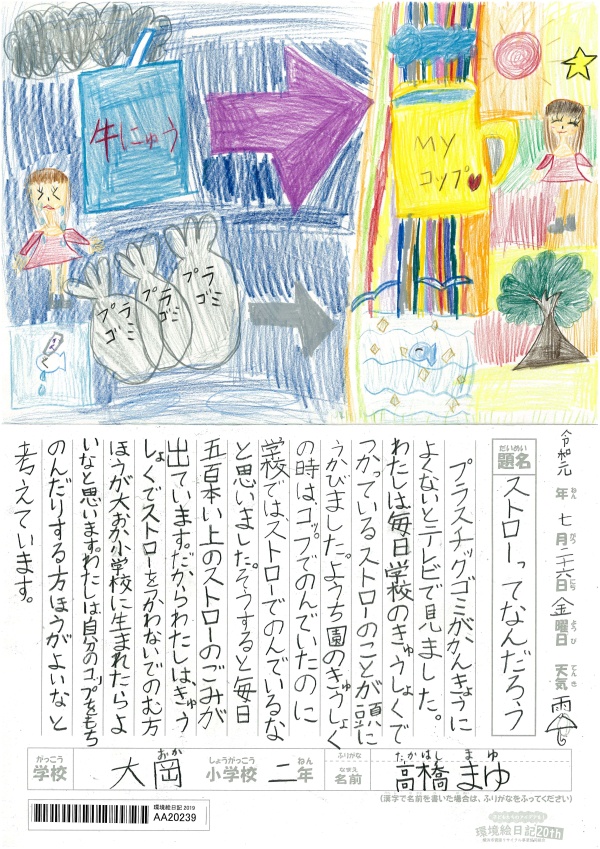 牛にゅう
MY
コップ
プラ
ゴミ
プラ
ゴミ
プラ
ゴミ
令和元年七月二十六日金曜日 天気雨
ねん がつ にち ようび てんき
だいめい
題名
ストローってなんだろう
プラスチックゴミがかんきょうに
よくないとテレビで見ました。
わたしは毎日学校のきゅうしょくで
つかっているストローのことが頭に
うかびました。ようち園のきゅうしょく
の時は、コップでのんでいたのに
学校では、ストローでのんでいるな
と思いました。そうすると毎日
五百本い上のストローのごみが
出ています。だからわたしは、きゅう
しょくでストローをつかわないでのむ方
ほうが大おか小学校に生まれたらよ
いなと思います。わたしは自分のコップをもち
のんだりする方ほうがよいなと
考えています。
がっこう
学校
おおおか
大岡
しょうがっこう
小学校
二年
ねん
ふりがな
なまえ
名前
たかはし まゆ
高橋まゆ
(漢字で名前を書いた場合は、ふりがなをふってください)
環境絵日記 2019
AA20239
環境絵日記20th